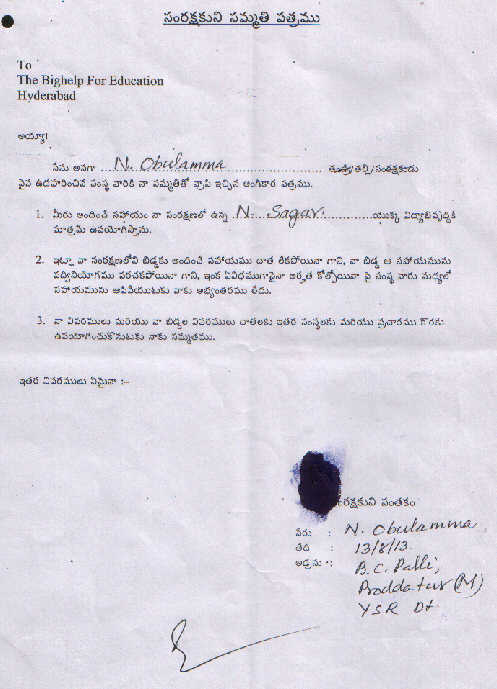 సంరక్షకుని సమ్మతి పత్రము
To
The Bighelp For Education
Hyderabad
అయ్యా!
నేను అనగా ...N. Obulamma........................ తండ్రి/తల్లి/సంరక్షకుడు
పైన ఉదహరించిన సంస్థ వారికి నా సమ్మతితో వ్రాసి ఇచ్చిన అంగీకార పత్రము.
1. మీరు అందించే సహాయం నా సంరక్షణలో ఉన్న N. Sagar...............యొక్క విద్యాభివృద్ధికి
మాత్రమే ఉపయోగిస్తాను.
2. ఇట్లా నా సంరక్షణలోని బిడ్డకు అందించే సహాయము దాత లేకపోయినా గాని, నా బిడ్డ ఆ సహాయమును
సద్వినియోగము పరచకపోయినా గాని, ఇంక ఏవిధముగానైనా అర్హత కోల్పోయినా పై సంస్థ వారు మధ్యలో
సహాయమును ఆపివేయుటకు నాకు అభ్యంతరము లేదు.
3. నా వివరములు మరియు నా బిడ్డల వివరములు దాతలకు ఇతర సంస్థలకు మరియు ప్రచారము కొరకు
ఉపయోగించుకొనుటకు నాకు సమ్మతము.
ఇతర వివరములు ఏమైనా :-
సంరక్షకుని సంతకం
పేరు : N. Obulamma
తేది : 13/8/13.
అడ్రసు : B.C. Palli,
Proddatur (M)
YSR Dt